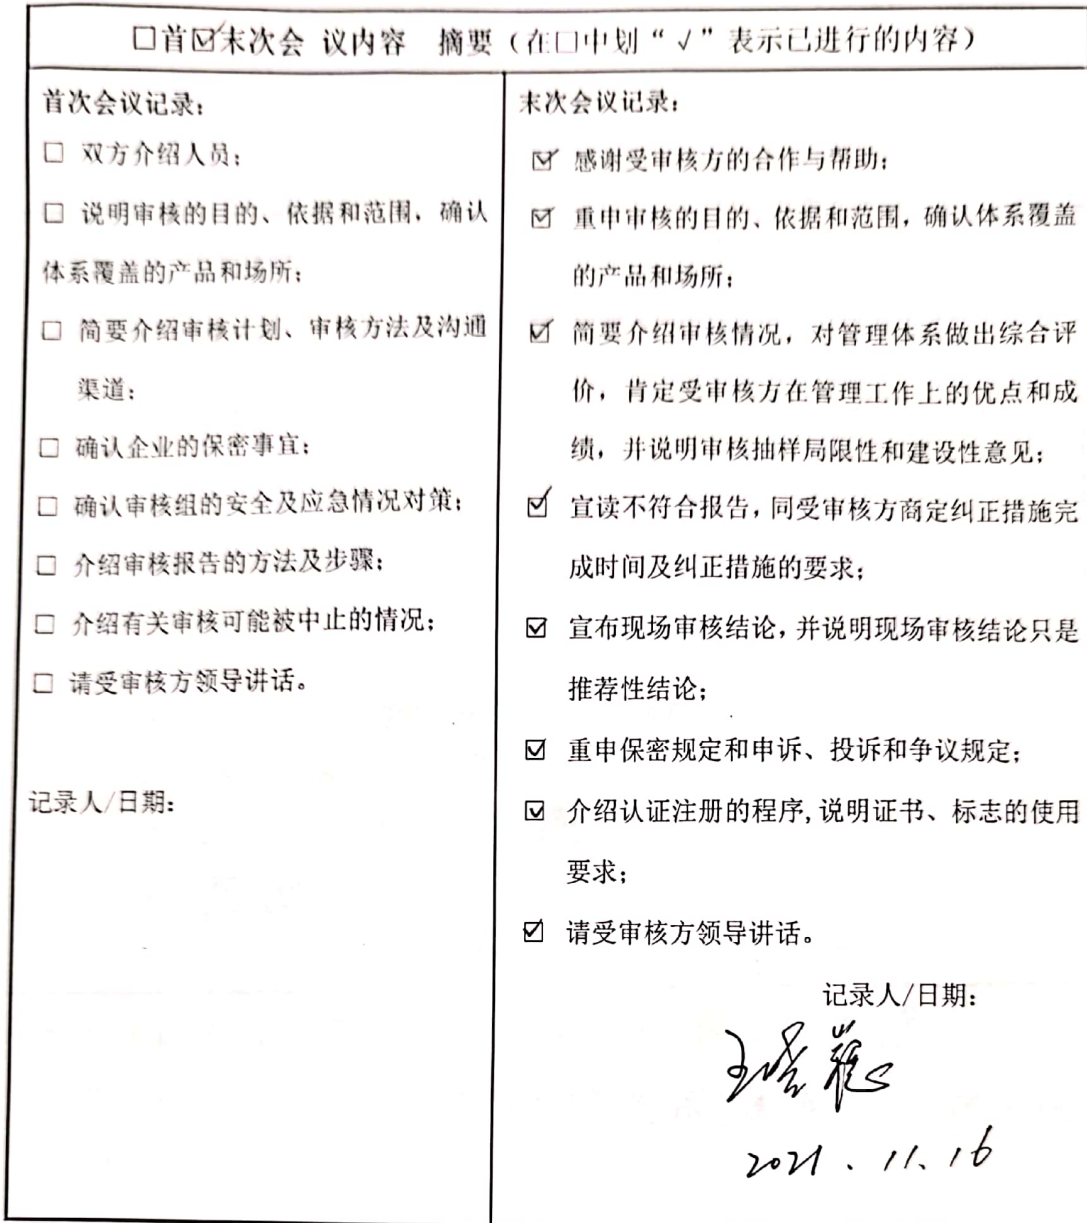 □首☑末次会 议内容 摘要（在□中划“√”表示已进行的内容）
首次会议记录：
□ 双方介绍人员；
□ 说明审核的目的、依据和范围，确认
体系覆盖的产品和场所；
□ 简要介绍审核计划、审核方法及沟通
渠道；
□ 确认企业的保密事宜；
□ 确认审核组的安全及应急情况对策；
□ 介绍审核报告的方法及步骤；
□ 介绍有关审核可能被中止的情况；
□ 请受审核方领导讲话。
记录人/日期：
末次会议记录：
☑ 感谢受审核方的合作与帮助；
☑ 重申审核的目的、依据和范围，确认体系覆盖
的产品和场所；
☑ 简要介绍审核情况，对管理体系做出综合评
价，肯定受审核方在管理工作上的优点和成
绩，并说明审核抽样局限性和建设性意见；
☑ 宣读不符合报告，同受审核方商定纠正措施完
成时间及纠正措施的要求；
☑ 宣布现场审核结论，并说明现场审核结论只是
推荐性结论；
☑ 重申保密规定和申诉、投诉和争议规定；
☑ 介绍认证注册的程序,说明证书、标志的使用
要求；
☑ 请受审核方领导讲话。
记录人/日期：
2021．11．16